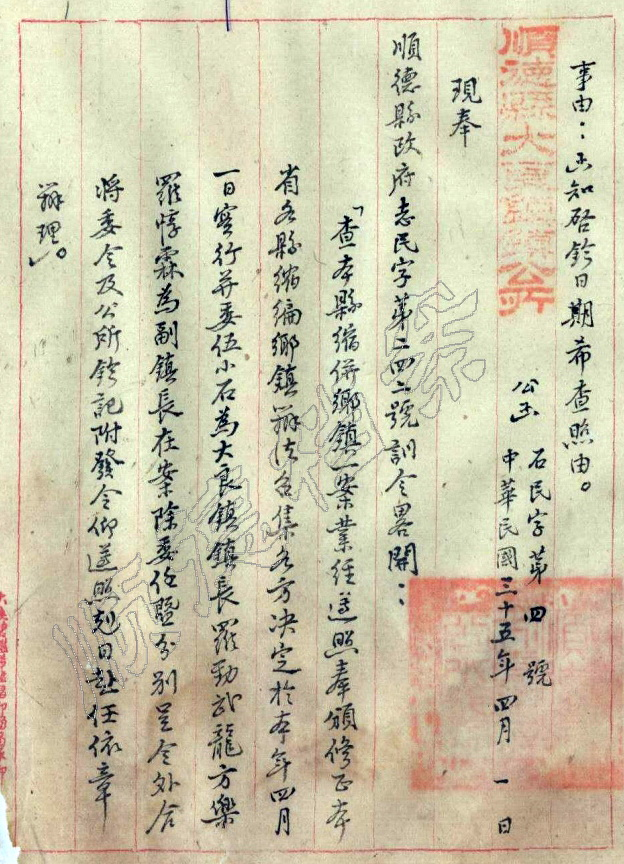 事由：函知啓鈐日期希查照由。
順德縣大良鎮鎮公所
公函
石民字第四號
中華民國三十五年四月一日
現奉
順德縣政府志民字第二四二號訓令畧開：
「查本縣縮併鄉鎮一案業經遵照奉頒修正本
省各縣縮編鄉鎮辦法召集各方決定於本年四月
一日實行并委伍小石為大良鎮鎮長羅勁武龍方樂
羅惇霖為副鎮長在案除委任暨分別呈令外合
將委令及公所鈐記附發令仰遵照尅日赴任依章
辦理」。
順德檔案